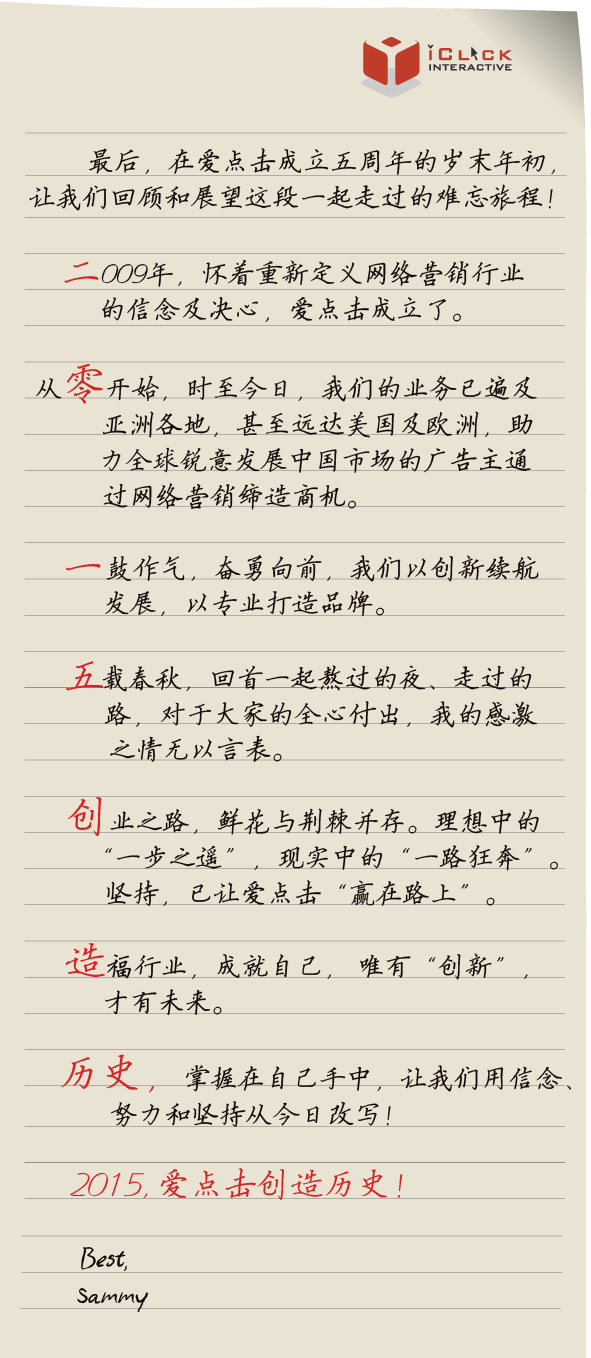 iCLiCK
INTERACTIVE
最后，在爱点击成立五周年的岁末年初，
让我们回顾和展望这段一起走过的难忘旅程！
二009年，怀着重新定义网络营销行业
的信念及决心，爱点击成立了。
从零开始，时至今日，我们的业务已遍及
亚洲各地，甚至远达美国及欧洲，助
力全球锐意发展中国市场的广告主通
过网络营销缔造商机。
一鼓作气，奋勇向前，我们以创新续航
发展，以专业打造品牌。
五载春秋，回首一起熬过的夜、走过的
路，对于大家的全心付出，我的感激
之情无以言表。
创业之路，鲜花与荆棘并存。理想中的
“一步之遥”，现实中的“一路狂奔”。
坚持，已让爱点击“赢在路上”。
造福行业，成就自己，唯有“创新”，
才有未来。
历史，掌握在自己手中，让我们用信念、
努力和坚持从今日改写！
2015,爱点击创造历史！
Best,
Sammy